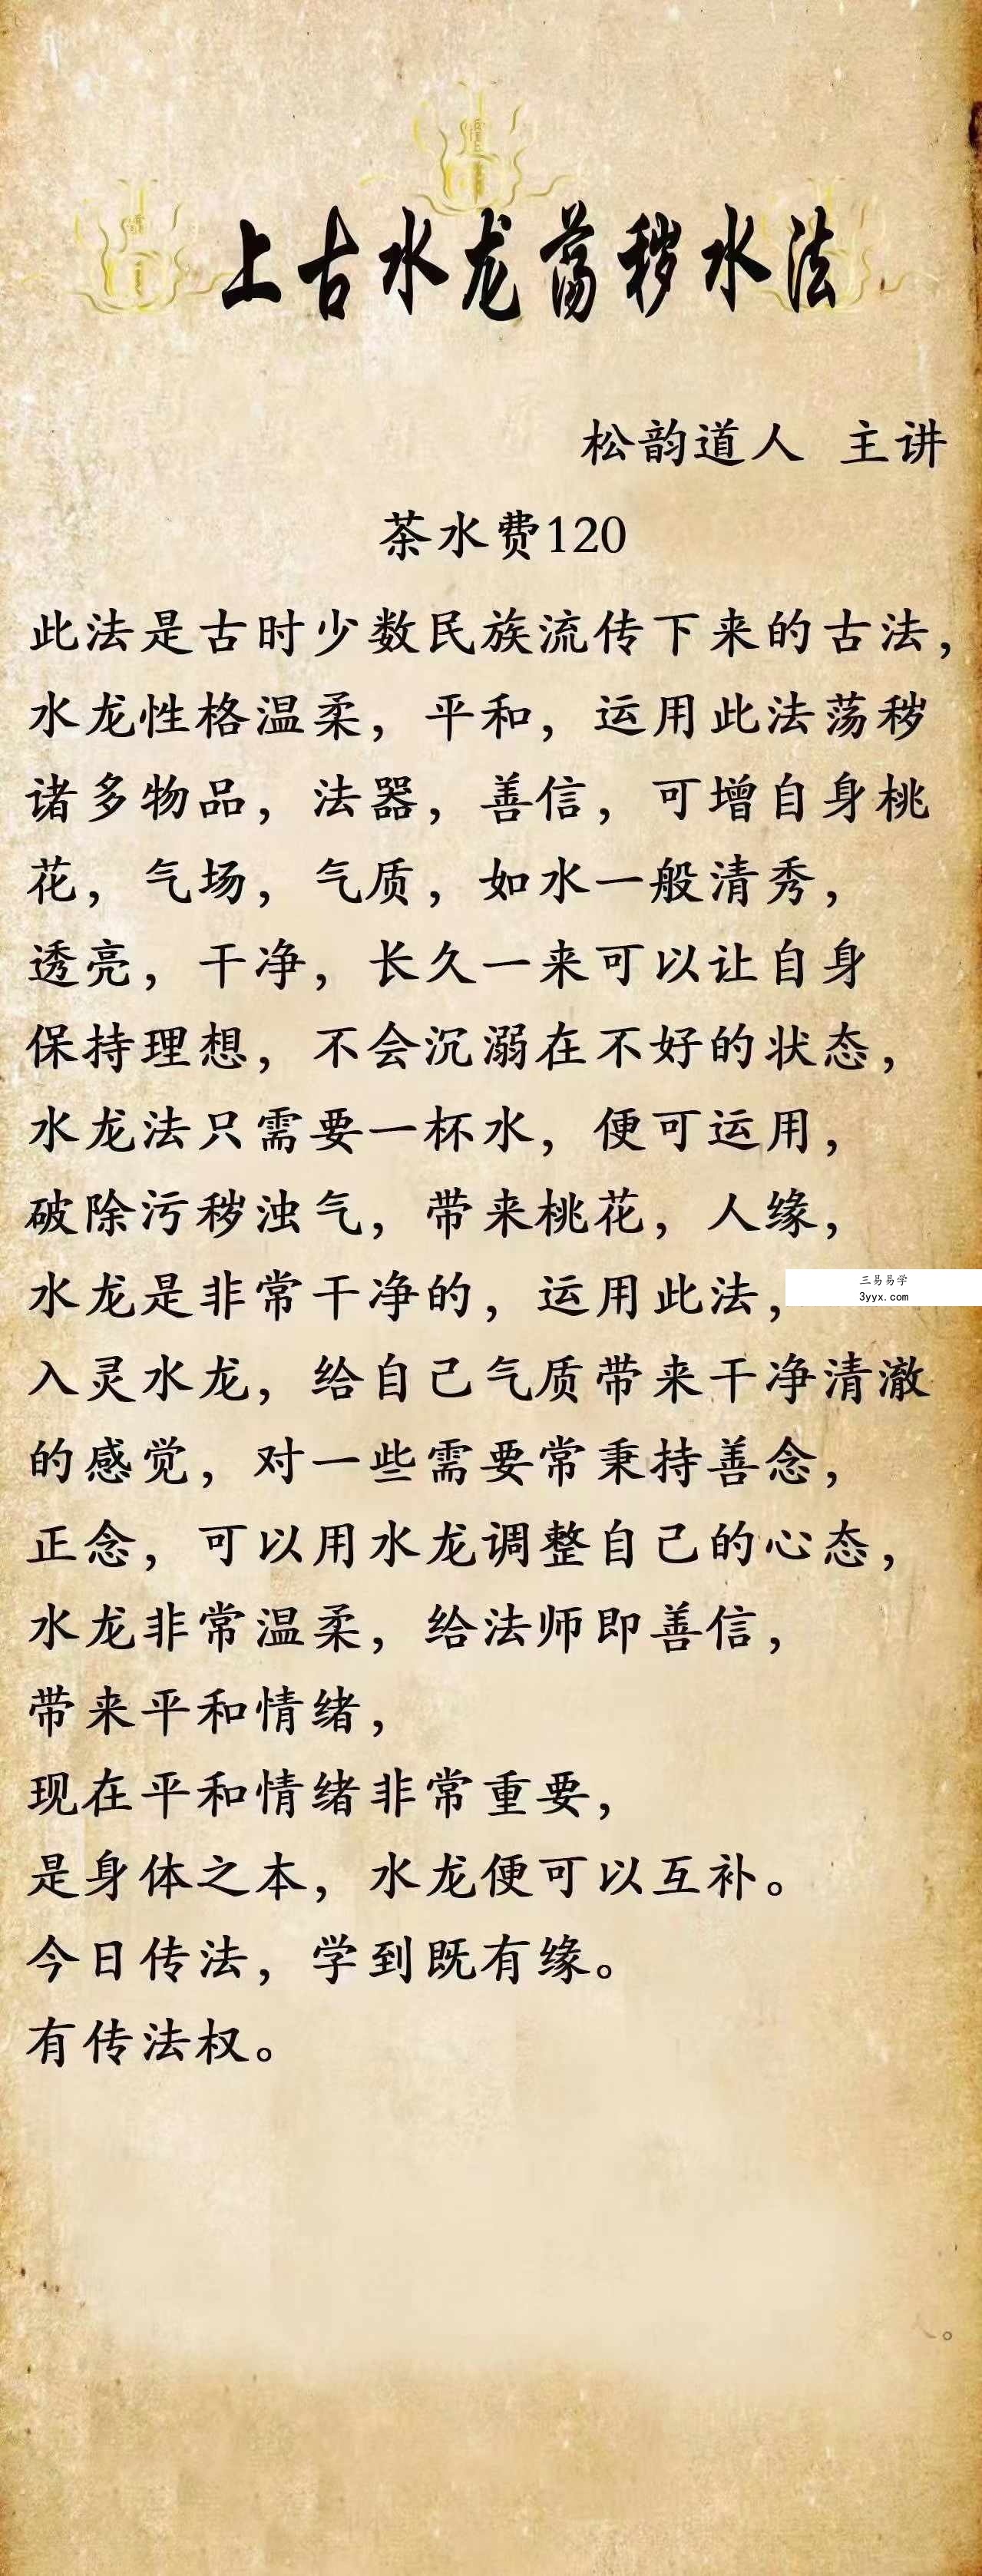 上古水龙荡秽水法
松韵道人 主讲
茶水费120
此法是古时少数民族流传下来的古法，
水龙性格温柔，平和，运用此法荡秽
诸多物品，法器，善信，可增自身桃
花，气场，气质，如水一般清秀，
透亮，干净，长久一来可以让自身
保持理想，不会沉溺在不好的状态，
水龙法只需要一杯水，便可运用，
破除污秽浊气，带来桃花，人缘，
水龙是非常干净的，运用此法，
三易易学
3yyx.com
入灵水龙，给自己气质带来干净清澈
的感觉，对一些需要常秉持善念，
正念，可以用水龙调整自己的心态，
水龙非常温柔，给法师即善信，
带来平和情绪，
现在平和情绪非常重要，
是身体之本，水龙便可以互补。
今日传法，学到既有缘。
有传法权。